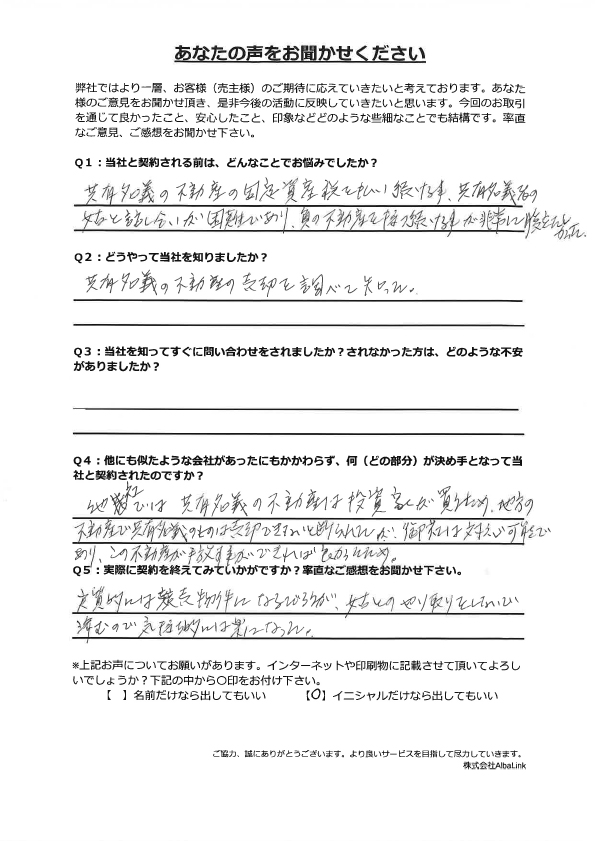 あなたの声をお聞かせください
弊社ではより一層、お客様（売主様）のご期待に応えていきたいと考えております。あなた
様のご意見をお聞かせ頂き、是非今後の活動に反映していきたいと思います。今回のお取引
を通じて良かったこと、安心したこと、印象などどのような些細なことでも結構です。率直
なご意見、ご感想をお聞かせ下さい。
Q１：当社と契約される前は、どんなことでお悩みでしたか？
共有名義の不動産の固定資産税を払い続ける事、共有名義者の
姉と話し合いが困難であり、負の不動産を持つ続ける事が非常に腹立たしかった。
Q２：どうやって当社を知りましたか？
共有名義の不動産の売却を調べて知った。
Q３：当社を知ってすぐに問い合わせをされましたか？されなかった方は、どのような不安
がありましたか？
Q４：他にも似たような会社があったにもかかわらず、何（どの部分）が決め手となって当
社と契約されたのですか？
他社では 共有名義の不動産は投資家しか買うため、地方の
不動産で共有名義のものは売却できないと断られたが、御社は対応が可能で
あり、この不動産が手放す事ができれば良かったため。
Q５：実際に契約を終えてみていかがですか？率直なご感想をお聞かせ下さい。
実質的には競売物件になるだろうが、姉とのやり取りをしないで
済むので気持ち的には楽になった。
※上記お声についてお願いがあります。インターネットや印刷物に記載させて頂いてよろし
いでしょうか？下記の中から〇印をお付け下さい。
【 】名前だけなら出してもいい 【〇】イニシャルだけなら出してもいい
ご協力、誠にありがとうございます。より良いサービスを目指して尽力していきます。
株式会社AlbaLink